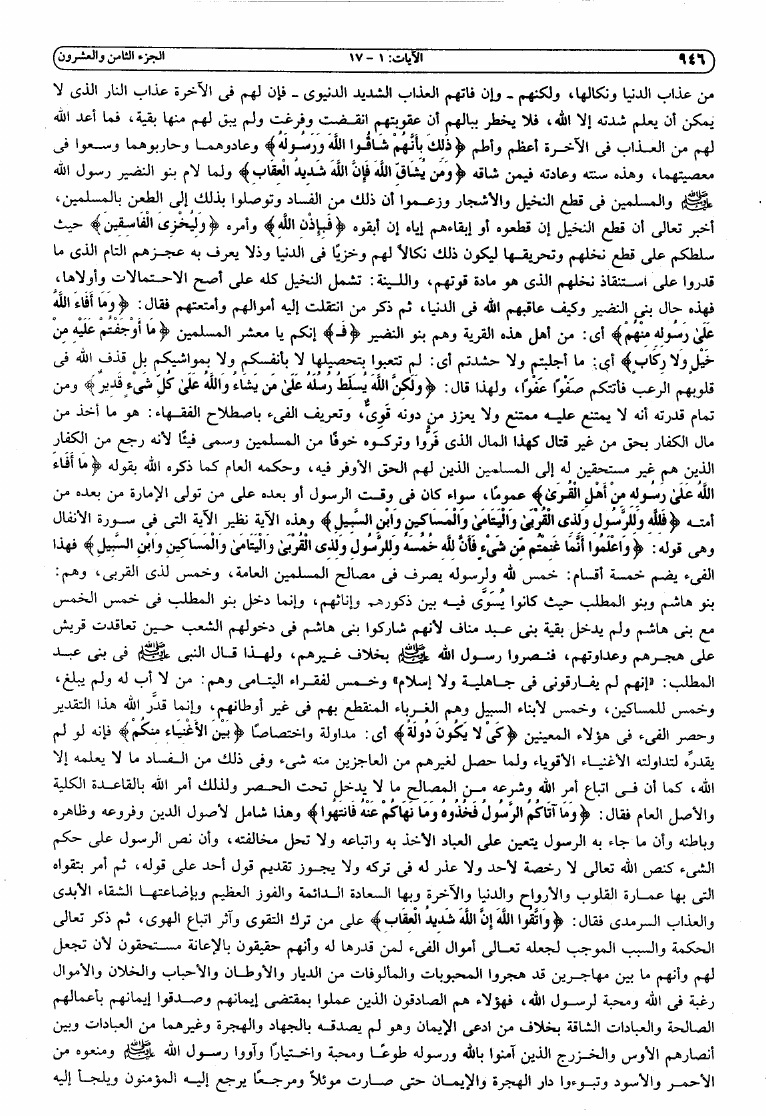 ٩٤٦ الآيات: ١ - ١٧ الجزء الثامن والعشرون
من عذاب الدنيا ونكالها، ولكنهم ـ وإن فاتهم العذاب الشديد الدنيوى ـ فإن لهم فى الآخرة عذاب النار الذى لا
يمكن أن يعلم شدته إلا الله، فلا يخطر ببالهم أن عقوبتهم انقضت وفرغت ولم يبق لهم منها بقية، فما أعد الله
لهم من العـذاب فى الآخـرة أعظم وأطم ﴿ذَلِكَ بِأَنَّهُمْ شَاقُّوا اللَّهَ وَرَسُولَهُ﴾ وعادوهمـا وحاربوهما وسعوا فى
معصيتهما، وهذه سنته وعادته فيمن شاقه ﴿وَمَن يُشَاقِّ اللَّهَ فَإِنَّ اللَّهَ شَدِيدُ الْعِقَابِ﴾ ولما لام بنو النضير رسول الله
ﷺ والمسلمين فى قطع النخيل والأشجار وزعـمـوا أن ذلك من الفساد وتوصلوا بذلك إلى الطعن بالمسلمين،
أخبر تعالى أن قطع النخيل إن قطعوه أو إبقاءهم إياه إن أبقوه ﴿فَبِإِذْنِ اللَّهِ﴾ وأمره ﴿وَلِيُخْزِيَ الْفَاسِقِينَ﴾ حيث
سلطكم على قطع نخلهم وتحريقـها ليكون ذلك نكالاً لهم وخزيًا فى الدنيا وذلا يعرف به عجـزهم التام الذى ما
قدروا على استنقاذ نخلهم الذى هو مادة قوتهم، واللـينة: تشمل النخيل كله على أصح الاحـتمالات وأولاها،
فهذه حال بنى النضير وكيف عاقبهم الله فى الدنيا، ثم ذكر من انتقلت إليه أموالهم وأمتعتهم فقال: ﴿وَمَا أَفَاءَ اللَّهُ
عَلَى رَسُولِهِ مِنْهُمْ﴾ أى: من أهل هذه القرية وهم بنو النضير ﴿فَـ﴾ إنكم يا معشر المسلمين ﴿مَا أَوْجَفْتُمْ عَلَيْهِ مِنْ
خَيْلٍ وَلا رِكَابٍ﴾ أى: ما أجليتم ولا حشدتم أى: لم تتعبوا بتحصيلها لا بأنفسكم ولا بمواشيكم بل قذف الله فى
قلوبهم الرعب فأتتكم صَفْوًا عَفْوًا، ولهذا قال: ﴿وَلَكِنَّ اللَّهَ يُسَلِّطُ رُسُلَهُ عَلَى مَن يَشَاءُ وَاللَّهُ عَلَى كُلِّ شَيْءٍ قَدِيرٌ﴾ ومن
تمام قدرته أنه لا يمتنع عليـه ممتنع ولا يعزز من دونه قَوِىٌّ، وتعريف الفىء باصطلاح الفقهـاء: هو ما أخذ من
مال الكفار بحق من غير قتال كهذا المال الذى فَرُّوا وتركـوه خوفًا من المسلمين وسمى فيئًا لأنه رجع من الكفار
الذين هم غير مستحقين له إلى المسلمين الذين لهم الحق الأوفر فيه، وحكمه العام كما ذكره الله بقوله ﴿مَا أَفَاءَ
اللَّهُ عَلَى رَسُولِهِ مِنْ أَهْلِ الْقُرَى﴾ عمومًا، سواء كان فى وقـت الرسول أو بعده على من تولى الإمارة من بعده من
أمتـه ﴿فَلِلَّهِ وَلِلرَّسُولِ وَلِذِي الْقُرْبَى وَالْيَتَامَى وَالْمَسَاكِينِ وَابْنِ السَّبِيلِ﴾ وهذه الآية نظير الآية التى فى سورة الأنفال
وهى قوله: ﴿وَاعْلَمُوا أَنَّمَا غَنِمْتُم مِّن شَيْءٍ فَأَنَّ لِلَّهِ خُمُسَهُ وَلِلرَّسُولِ وَلِذِي الْقُرْبَى وَالْيَتَامَى وَالْمَسَاكِينِ وَابْنِ السَّبِيلِ﴾ فهذا
الفىء يضم خمسة أقسام: خمس لله ولرسوله يصرف فى مصالح المسلمين العامة، وخمس لذى القربى، وهم:
بنو هاشم وبنو المطلب حيث كانوا يُسَوَّى فيـه بين ذكورهم وإناثهم، وإنما دخل بنو المطلب فى خمس الخمس
مع بنى هاشم ولم يدخل بقية بنى عبـد مناف لأنهم شاركوا بنى هاشم فى دخولهم الشعب حـين تعاقدت قريش
على هجـرهم وعداوتهم، فنـصروا رسول الله ﷺ بخلاف غيـرهم، ولهـذا قـال النبى ﷺ فى بنى عبـد
المطلب: «إنهم لم يفـارقونى فى جـاهلية ولا إسلام» وخـمس لفقراء اليتـامى وهم: من لا أب له ولم يبلغ،
وخمس للمساكين، وخمس لأبناء السبيل وهم الغـرباء المنقطع بهم فى غير أوطانهم، وإنما قدَّر الله هذا التقدير
وحصر الفىء فى هؤلاء المعينين ﴿كَيْ لا يَكُونَ دُولَةً﴾ أى: مداولة واختصاصًا ﴿بَيْنَ الأَغْنِيَاءِ مِنكُمْ﴾ فإنه لو لم
يقدرْه لتداولته الأغنيـاء الأقوياء ولما حصل لغيرهم من العاجزين منه شىء وفى ذلك من الـفساد ما لا يعلمه إلا
الله، كما أن فـى اتباع أمر الله وشرعه مـن المصالح ما لا يدخل تحت الحـصر ولذلك أمر الله بالقاعـدة الكلية
والأصل العام فقال: ﴿وَمَا آتَاكُمُ الرَّسُولُ فَخُذُوهُ وَمَا نَهَاكُمْ عَنْهُ فَانتَهُوا﴾ وهذا شامل لأصول الدين وفروعه وظاهره
وباطنه وأن ما جاء به الرسول يتعين على العباد الأخذ به واتباعه ولا تحل مخالفته، وأن نص الرسول على حكم
الشىء كنص الله تعالى لا رخصة لأحد ولا عذر له فى تركه ولا يجـوز تقديم قول أحد على قوله، ثم أمر بتقواه
التى بها عمـارة القلوب والأرواح والدنيا والآخرة وبها السعادة الـدائمة والفوز العظيم وبإضاعتهـا الشقاء الأبدى
والعذاب السرمدى فقال: ﴿وَاتَّقُوا اللَّهَ إِنَّ اللَّهَ شَدِيدُ الْعِقَابِ﴾ على من ترك التقوى وآثر اتباع الهوى، ثم ذكر تعالى
الحكمة والسبب الموجب لجعله تعـالى أموال الفىء لمن قدرها له وأنهم حقيقون بالإعانة مسـتحقون لأن تجعل
لهم وأنهم ما بين مهاجـرين قد هجروا المحبوبات والمألوفات من الديار والأوطـان والأحباب والخلان والأموال
رغبة فى الله ومحبة لرسـول الله، فهؤلاء هم الصادقون الذين عملوا بمقتضى إيمانهم وصـدقوا إيمانهم بأعمالهم
الصالحة والعبادات الشاقة بخلاف من ادعى الإيمان وهو لم يصدقـه بالجهاد والهجرة وغيرهما من العبادات وبين
أنصارهم الأوس والخـزرج الذين آمنوا بالله ورسوله طوعًـا ومحبة واختيارًا وآووا رسول الله ﷺ ومنعوه من
الأحمـر والأسود وتبـوءوا دار الهجرة والإيمـان حتى صـارت موئلاً ومرجـعـًا يرجع إليـه المؤمنون ويلجـأ إليه